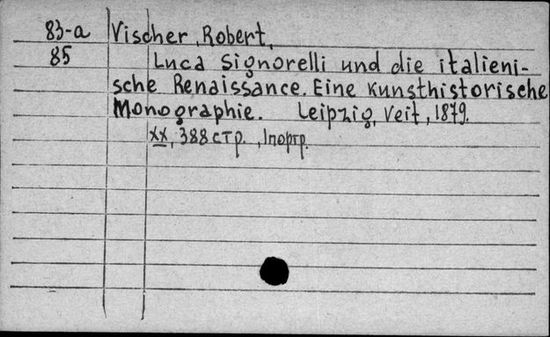 83-a Vischer, Robert,
85 Luca Signorelli und die italieni-
sche Renaissance. Eine kunsthistorische
Monographie. Leipzig, Veit, 1879.
XX, 388 стр., 1 портр.